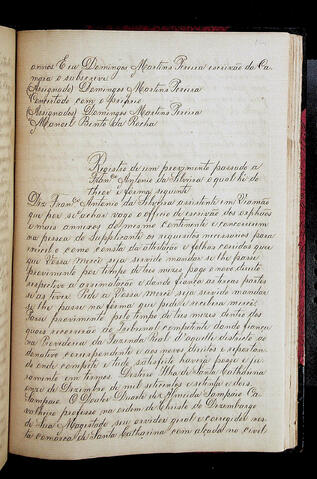 annos Eu Domingos Martins Pereira escrivão da Ca-
mara o subscrevi
(Assignado) Domingos Martins Pereira
Concertado com o proprio
(Assignados) Domingos Martins Pereira
Manoel Bento da Rocha
Registro de um provimento passado a
Fran.co Antonio da Silveira o qual he do
theor e forma seguinte
Diz Fran.co Antonio da Silveira assistente em Viamão
que por se achar vago o officio de escrivão dos orphãos
e mais annexos do mesmo continente e concorrem
na pessoa do Supplicante os requisitos necessarios para
o como consta da attestação e folhas corridas quer
que Vossa mercê seja servido mandar se lhe passe
provimento por tempo de tres mezes pago o novo direito
respectivo a e dando fiança as terças partes
se as tiver Pede a Vossa mercê seja servido mandar
se lhe passe na forma que pede e receberá mercê
Passe provimento pelo tempo de tres mezes dentro dos
quaes recorrerão ao Tribunal competente dando fiança
na Provedoria da Fazenda Real d'aquelle districto ao
donativo correspondente e aos novos direitos e
de onde compete e tudo satisfeito haverá posse e ju-
ramento em termos Desterro Ilha de Santa Catharina
onze de Dezembro de mil setecentos e setenta e dois
Sampaio O Doutor Duarte de Almeida Sampaio Ca-
valheiro professo na ordem de Christo do Dezembargo
de Sua Magestade seu ouvidor geral e corregedor nes-
ta comarca de Santa Catharina com alçada no civil